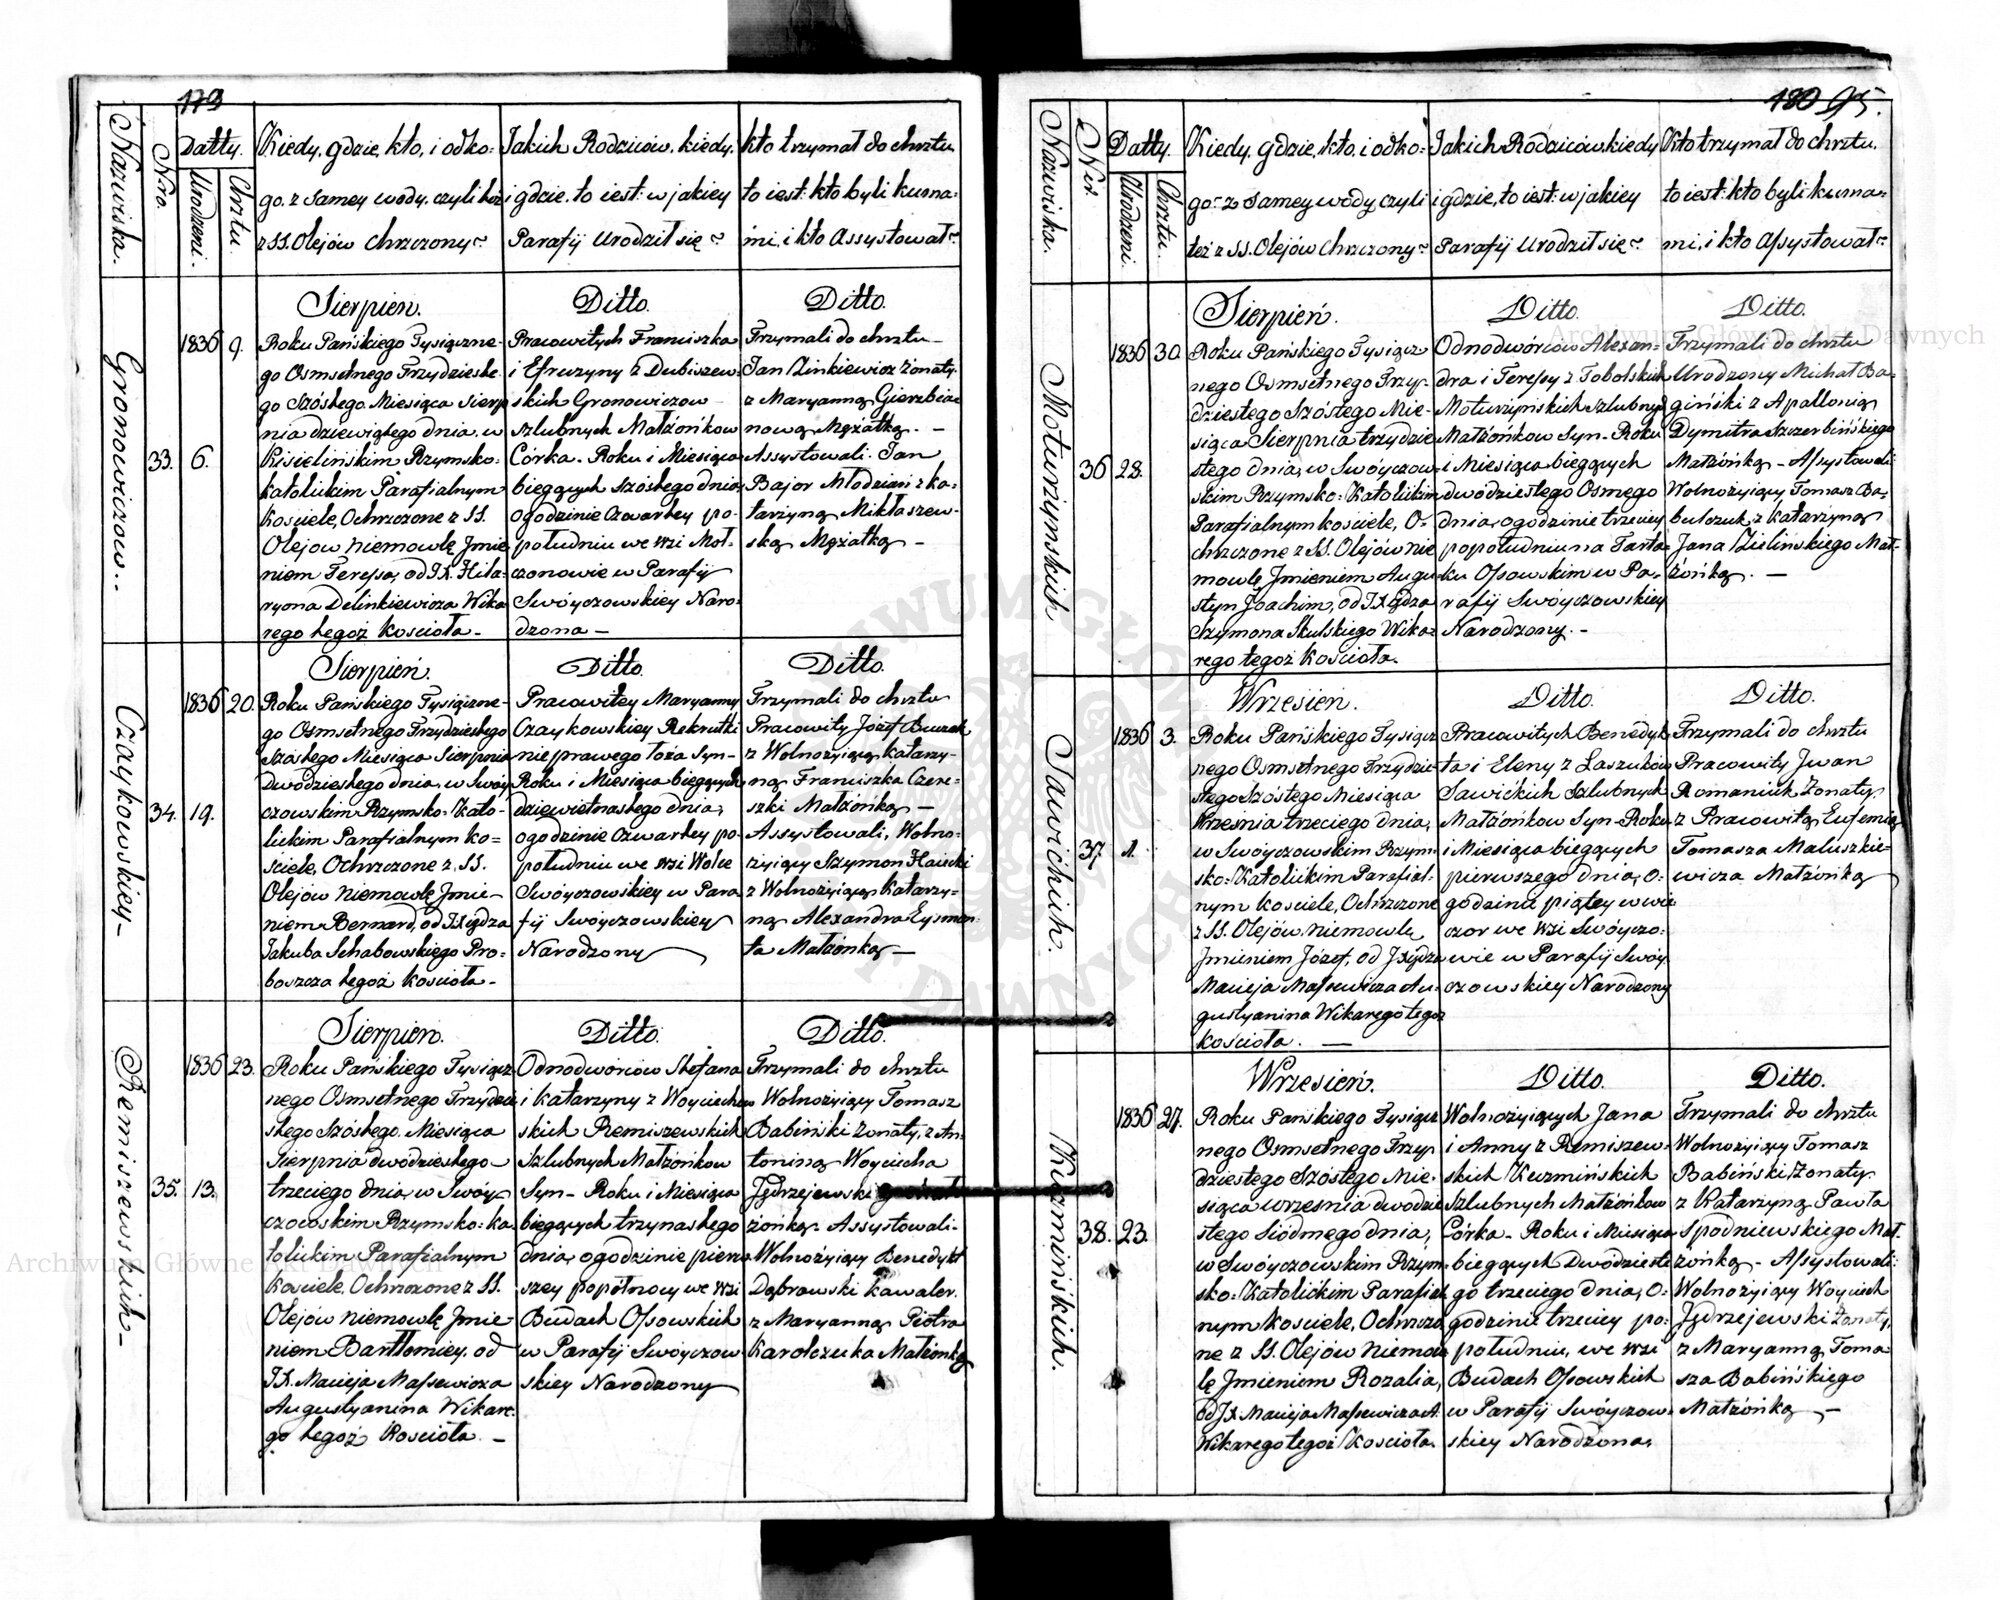 179
Nazwiska.
Nro.
Datty.
Urodzeni.
Chrztu.
Kiedy, gdzie, kto, i od ko=
go. z samey wody, czyli też
z SS. Olejów Chrzczony?
Jakich Rodziców, kiedy,
i gdzie, to iest: w jakiey
Parafij Urodził się?
kto trzymał do chrztu,
to iest: kto byli kuma=
mi, i kto Assystował?
Gronowiczow.
33.
1836
6.
9.
Sierpien.
Roku Pańskiego Tysiączne=
go Osmsetnego Trzydzieste
go Szóstego Miesiąca Sierp
nia dziewiątego dnia, w
Kisielińskim Rzymsko=
katolickim Parafialnym
Kościele, Ochrzczone z SS.
Olejow niemowlę Jmie
niem Teressa, od JX. Hila=
ryona Delinkiewicza Wika
rego tegoż kościoła.
Ditto.
Pracowitych Franciszka
i Efruzyny z Dubiszew=
skich Gronowiczow
szlubnych Małżonkow
Córka. Roku i Miesiąca
biegących szóstego dnia,
o godzinie Czwartey po=
południu we wsi Moł=
czonowie w Parafij
Swóyczowskiey Naro=
dzona —
Ditto.
Trzymali do chrztu
Jan Zinkiewicz żonaty
z Maryanną Gierzbia
nową Mężatką. —
Assystowali. Jan
Bajor Młodzian z ka=
tarzyną Mikłaszew=
ską Mężatką —
Czaykowskiey
34.
1836
19.
20.
Sierpień.
Roku Pańskiego Tysiączne=
go Osmsetnego Trzydziestego
Szóstego Miesiąca Sierpnia
Dwódziestego dnia, w Swóy
czowskim Rzymsko=Kato=
lickim Parafialnym ko=
ściele, Ochrzczone z SS.
Olejów niemowlę Jmie=
niem Bernard, od JXiędza
Jakuba Schabowskiego Pro=
boszcza tegoż kościoła.
Ditto
Pracowitey Maryanny
Czaykowskiey Rekrutki
nieprawego łoża Syn
Roku i Miesiąca bieących
dziewiętnastego dnia,
o godzinie Czwartey po
południu we wsi Wolce
Swóyczowskiey w Para
fij Swóyczowskiey
Narodzony
Ditto.
Trzymali do chrztu
Pracowity Józef Burak
z Wolnożyjącą Katarzy=
ną Franciszka Czere=
szki Małżonką —
Assystowali, Wolno=
żyiący Szymon Haiecki
z Wolnożyjącą Katarzy=
ną Alexandra Eysmon
ta Małżonką —
Remiszewskich
35.
1836
13.
23.
Sierpień.
Roku Pańskiego Tysiącz
nego Osmsetnego Trzydzie
stego Szóstego. Miesiąca
Sierpnia dwódziestego
trzeciego dnia, w Swóy=
czowskim Rzymsko=ka
tolickim Parafialnym
kościele, Ochrzczone z SS.
Olejów niemowlę Jmie
niem Bartłomiey, od
JX. Macieja Massewicza
Augustyanina Wikare=
go tegoż Kościoła. —
Ditto.
Odnodworców Stefana
i Katarzyny z Woyciechow
skich Remiszewskich
Szlubnych Małżonkow
Syn. Roku i Miesiąca
bieących trzynastego
dnia, o godzinie pierw
szey popółnocy we wsi
Budach Ossowskich
w Parafij Swóyczow=
skiey Narodzony
Ditto.
Trzymali do chrztu
Wolnożyiący Tomasz
Babiński żonaty, z An=
toniną Woyciecha
Jędrzejewski
żonką. Assystowali.
Wolnożyiący Benedykt
Dąbrowski kawaler.
z Maryanną Piotra
Karolczuka Małżonką
180 95.
Nazwiska.
Nro.
Datty.
Urodzeni.
Chrztu.
Kiedy, gdzie, kto, i od ko=
go? z samey wody, czyli
też z SS. Olejów Chrzczony?
Jakich Rodziców kiedy
i gdzie, to iest: w jakiey
Parafij Urodził się?
Kto trzymał do chrztu,
to iest: kto byli kuma=
mi, i kto Assystował?
Moturzynskich
36
1836
28.
30.
Sierpień.
Roku Pańskiego Tysiącz
nego Osmsetnego Trzy=
dziestego Szóstego Mie=
siąca Sierpnia trzydzie
stego dnia, w Swóyczow=
skim Rzymsko=Katolickim
Parafialnym kościele, O=
chrzczone z SS. Olejów nie
mowlę Jmieniem Augu
styn Joachim, od JXiędza
Szymona Skulskiego Wika=
rego tegoż kościoła.
Ditto.
Odnodwórców Alexan=
dra i Teressy z Tobolskich
Moturzyńskich Szlubnych
Małżonkow Syn. Roku
i Miesiąca bieących
dwódziestego Osmego
dnia, o godzinie trzeciey
popołudniu na Tarta=
ku Ossowskim w Pa=
rafij Swóyczowskiey
Narodzony. —
Ditto.
Trzymali do chrztu
Urodzony Michał Ba=
giński z Apallonią
Dymitra Szczerbińskiego
Małżonką — Assystowali
Wolnożyiący Tomasz Ba=
bulczuk, z Katarzyną
Jana Zielinskiego Mał=
żonką. —
Sawickich.
37
1836
1.
3.
Wrzesień.
Roku Pańskiego Tysiącz
nego Osmsetnego Trzydzie
stego Szóstego Miesiąca
Września trzeciego dnia,
w Swóyczowskim Rzym
sko=Katolickim Parafial=
nym kościele, Ochrzczone
z SS. Olejów niemowlę
Jmieniem Józef, od JXiędza
Macieja Massewicza Au=
gustyanina Wikarego tegoż
kościoła. —
Ditto.
Pracowitych Benedyk
ta i Eleny z Laszuków
Sawickich Szlubnych
Małżonkow Syn. Roku
i Miesiąca bieących
pierwszego dnia, o=
godzinie piątey wwie
czor we wsi Swóyczo=
wie w Parafij Swóy
czowskiey Narodzony
Ditto.
Trzymali do chrztu
Pracowity Jwan
Romaniuk Żonaty
z Pracowitą Eufemią
Tomasza Maluszkie=
wicza Małżonką
Kuzminskich.
38.
1836
23.
27.
Wrzesień.
Roku Pańskiego Tysiącz
nego Osmsetnego Trzy
dziestego Szóstego Mie=
siąca września dwódzie
stego Siódmego dnia,
w Swóyczowskim Rzym
sko=Katolickim Parafial
nym kościele, Ochrzczo
ne z SS. Olejów niemow
lę Jmieniem Rozalia,
od JX. Macieja Massewicza A.
Wikarego tegoż Kościoła.
Ditto.
Wolnożyiących Jana
i Anny z Remiszew=
skich Kuzmińskich
Szlubnych Małżonkow
Córka. Roku i Miesiąca
bieących Dwódzieste
go trzeciego dnia, o=
godzinie trzeciey po=
południu, we wsi
Budach Ossowskich
w Parafij Swóyczow=
skiey Narodzona,
Ditto.
Trzymali do chrztu
Wolnożyiący Tomasz
Babiński Żonaty
z Katarzyną Pawła
Spodniewskiego Mał=
żonką. Assystowali:
Wolnożyiący Woyciech
Jędrzejewski Żonaty,
z Maryanną Toma
sza Babińskiego
Małżonką —
Archiwum Główne Akt Dawnych
Archiwum Główne Akt Dawnych